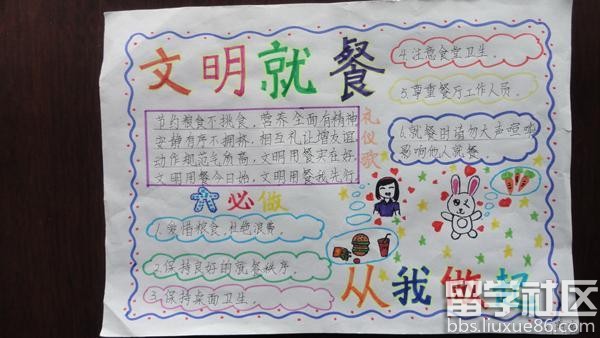 文明就餐
节约粮食不挑食，营养全面有精神
安静有序不拥挤，相互礼让增友谊
动作规范气质高，文明用餐实在好，
文明用餐今日始，文明用餐我先行，
礼仪歌
六必做
1.爱惜粮食，杜绝浪费。
2.保持良好的就餐秩序。
3.保持桌面卫生。
4.注意食堂卫生。
5.尊重餐厅工作人员。
6.就餐时请勿大声喧哗
影响他人就餐。
从我做起
留学社区
bbs.liuxue86.com